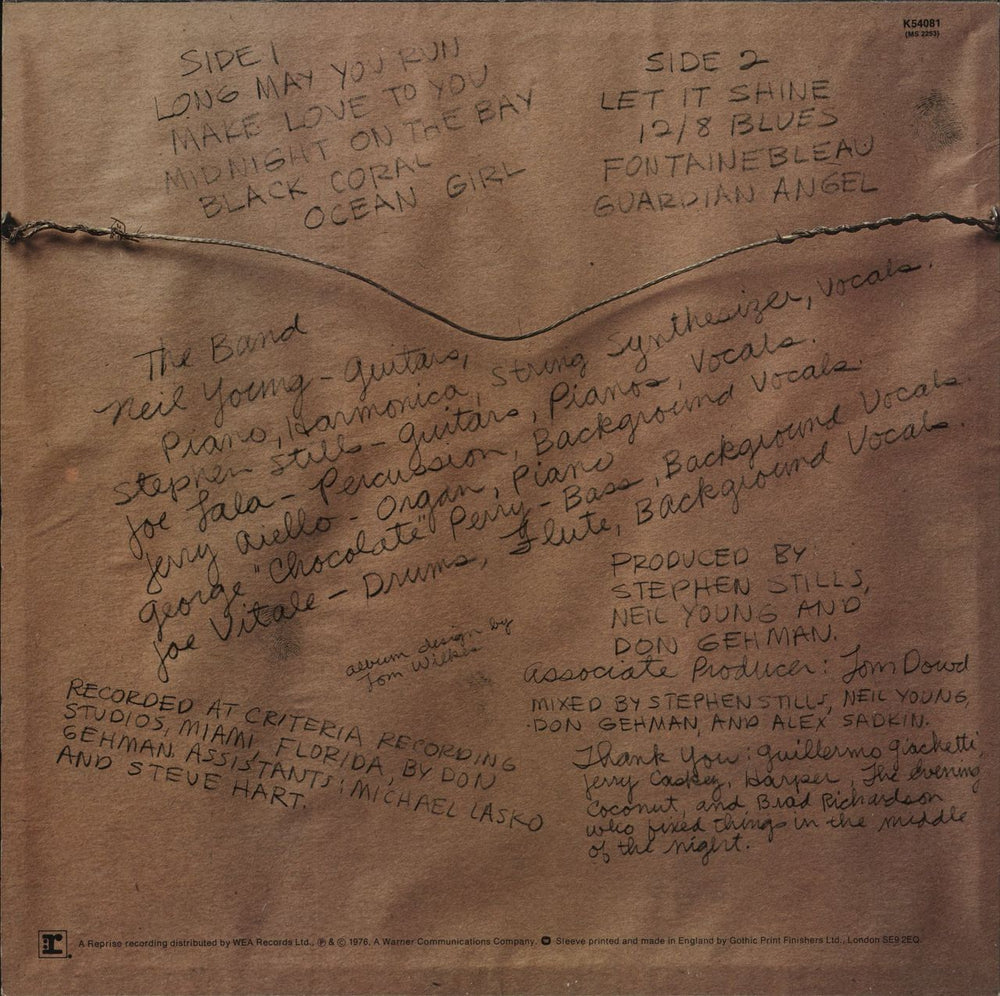 K54081
(MS 2253)
SIDE 1
LONG MAY YOU RUN
MAKE LOVE TO YOU
MIDNIGHT ON THE BAY
BLACK CORAL
OCEAN GIRL
SIDE 2
LET IT SHINE
12/8 BLUES
FONTAINEBLEAU
GUARDIAN ANGEL
The Band
Neil Young - Guitars,
Piano, Harmonica, String Synthesizer, Vocals.
Stephen Stills - Guitars, Pianos, Vocals.
Joe Lala - Percussion, Background Vocals.
Jerry Aiello - Organ, Piano
George "Chocolate" Perry - Bass, Background Vocals.
Joe Vitale - Drums, Flute, Background Vocals.
album design by
Tom Wilkes
PRODUCED BY
STEPHEN STILLS,
NEIL YOUNG AND
DON GEHMAN.
Associate Producer: Tom Dowd
MIXED BY STEPHEN STILLS, NEIL YOUNG,
DON GEHMAN, AND ALEX SADKIN.
RECORDED AT CRITERIA RECORDING
STUDIOS, MIAMI FLORIDA, BY DON
GEHMAN. ASSISTANTS: MICHAEL LASKO
AND STEVE HART.
Thank You: Guillermo Giachetti,
Jerry Caskey, Harper, The evening
Coconut, and Brad Richardson
who fixed things in the middle
of the night.
r
A Reprise recording distributed by WEA Records Ltd., ℗ & © 1976, A Warner Communications Company. Sleeve printed and made in England by Gothic Print Finishers Ltd., London SE9 2EQ.